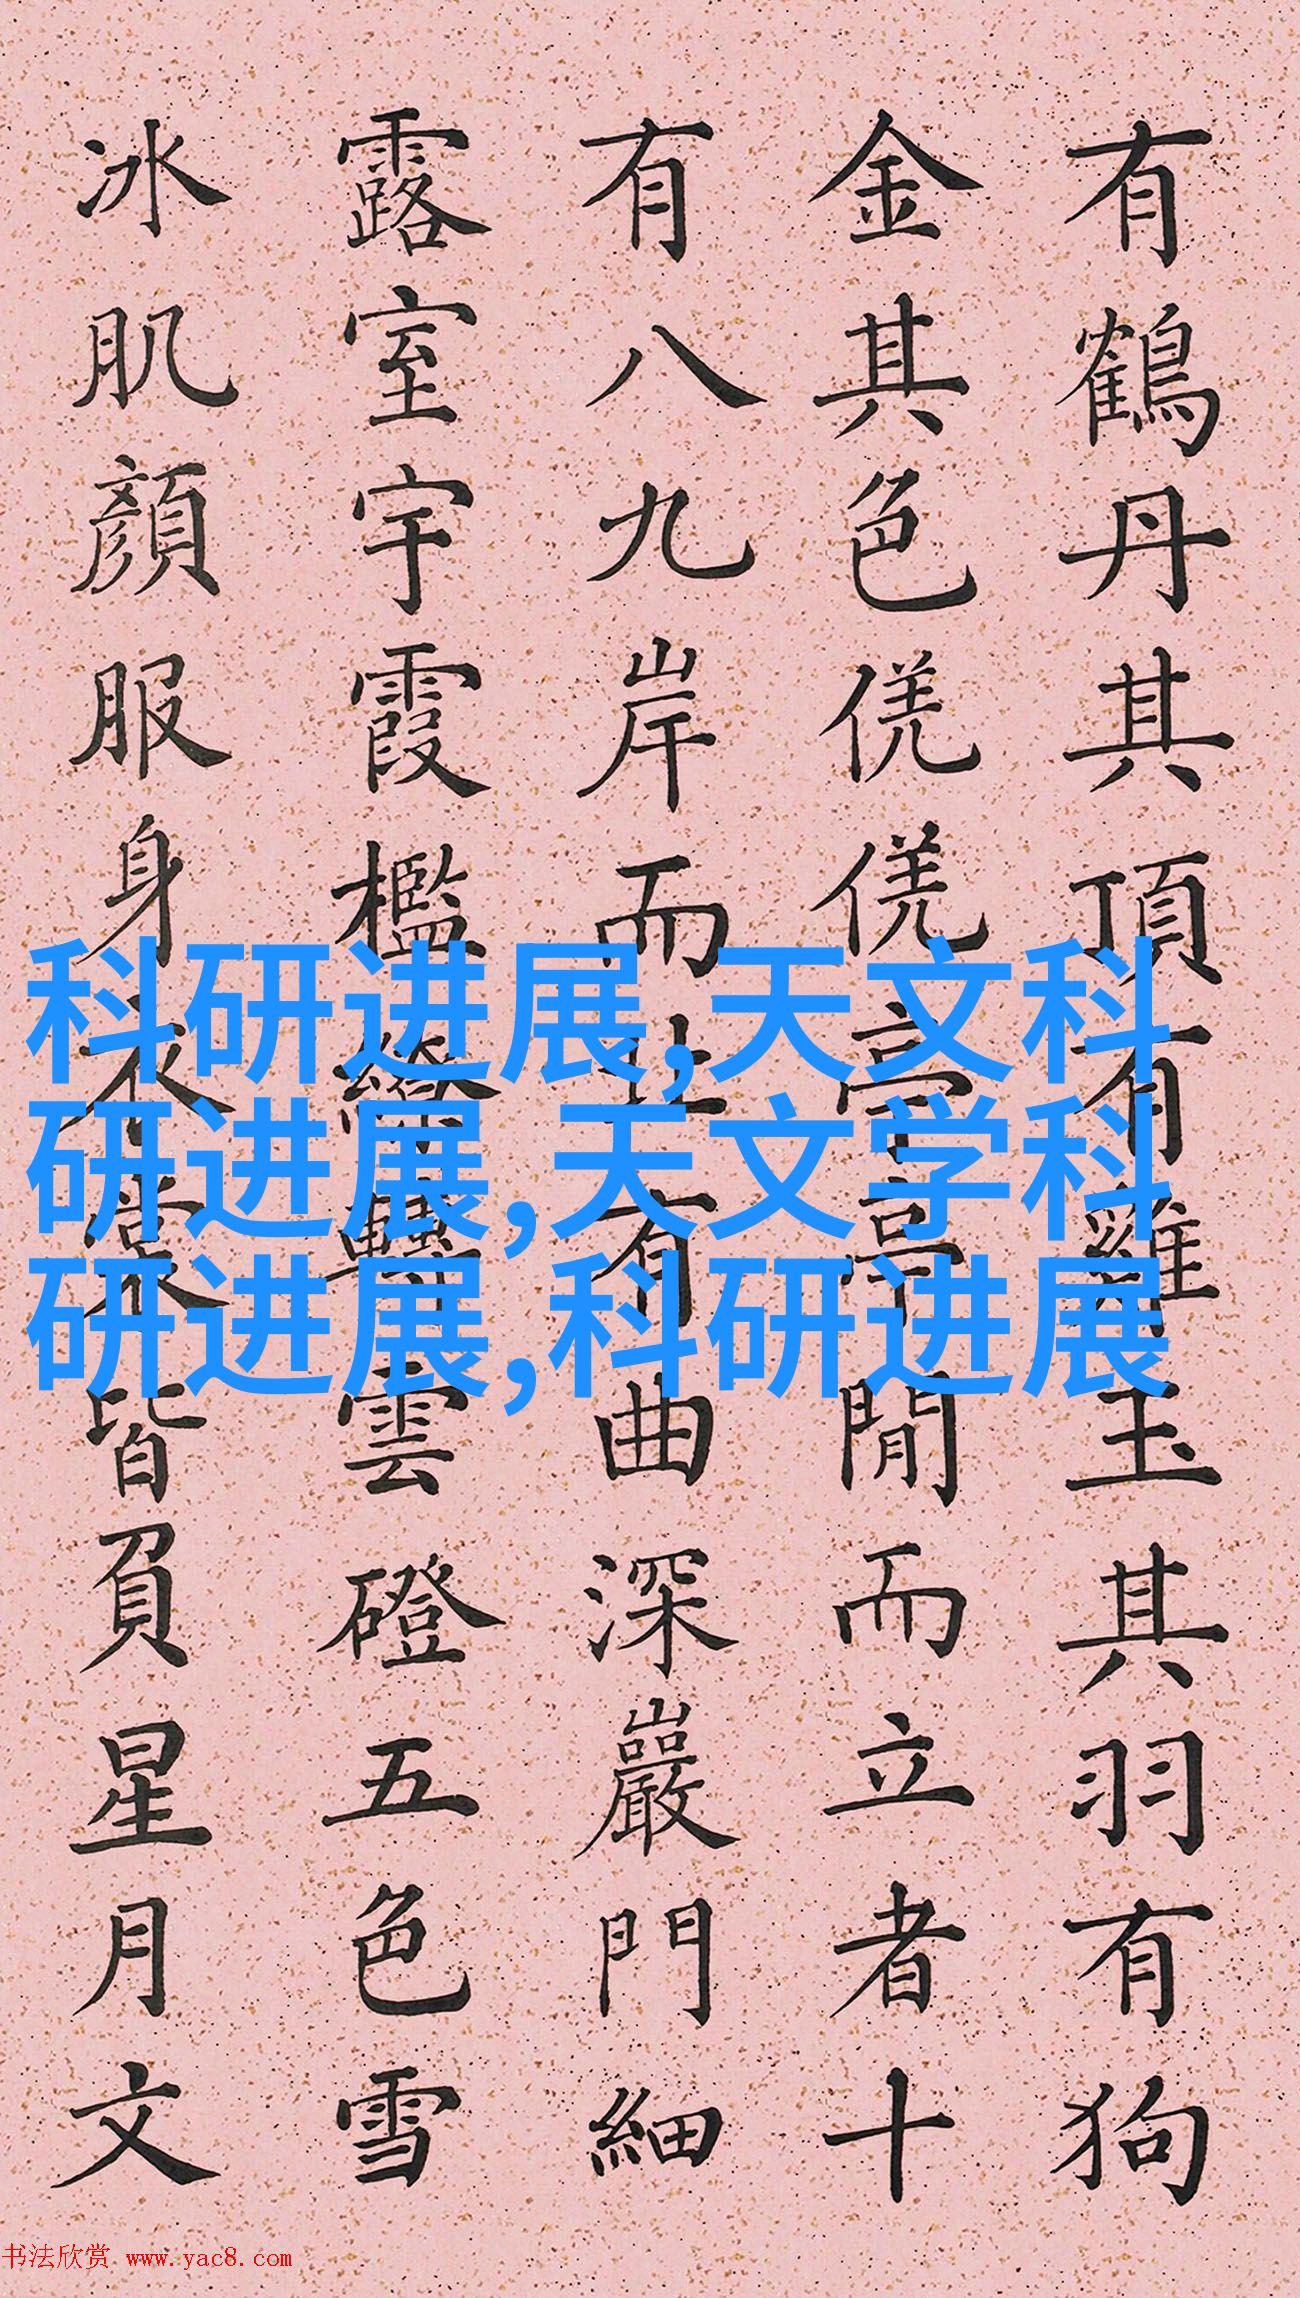 有鶴丹其頂有雞玉其羽有狗
金其色亭亭閒而立者十
有八九岸而有曲深巖門細
露室宇霞檻雲磴五色雪
冰肌顏服身衣裳皆負星月文
科研进展,天文科
研进展,天文学科
研进展,科研进展
书法欣赏 www.yac8.com